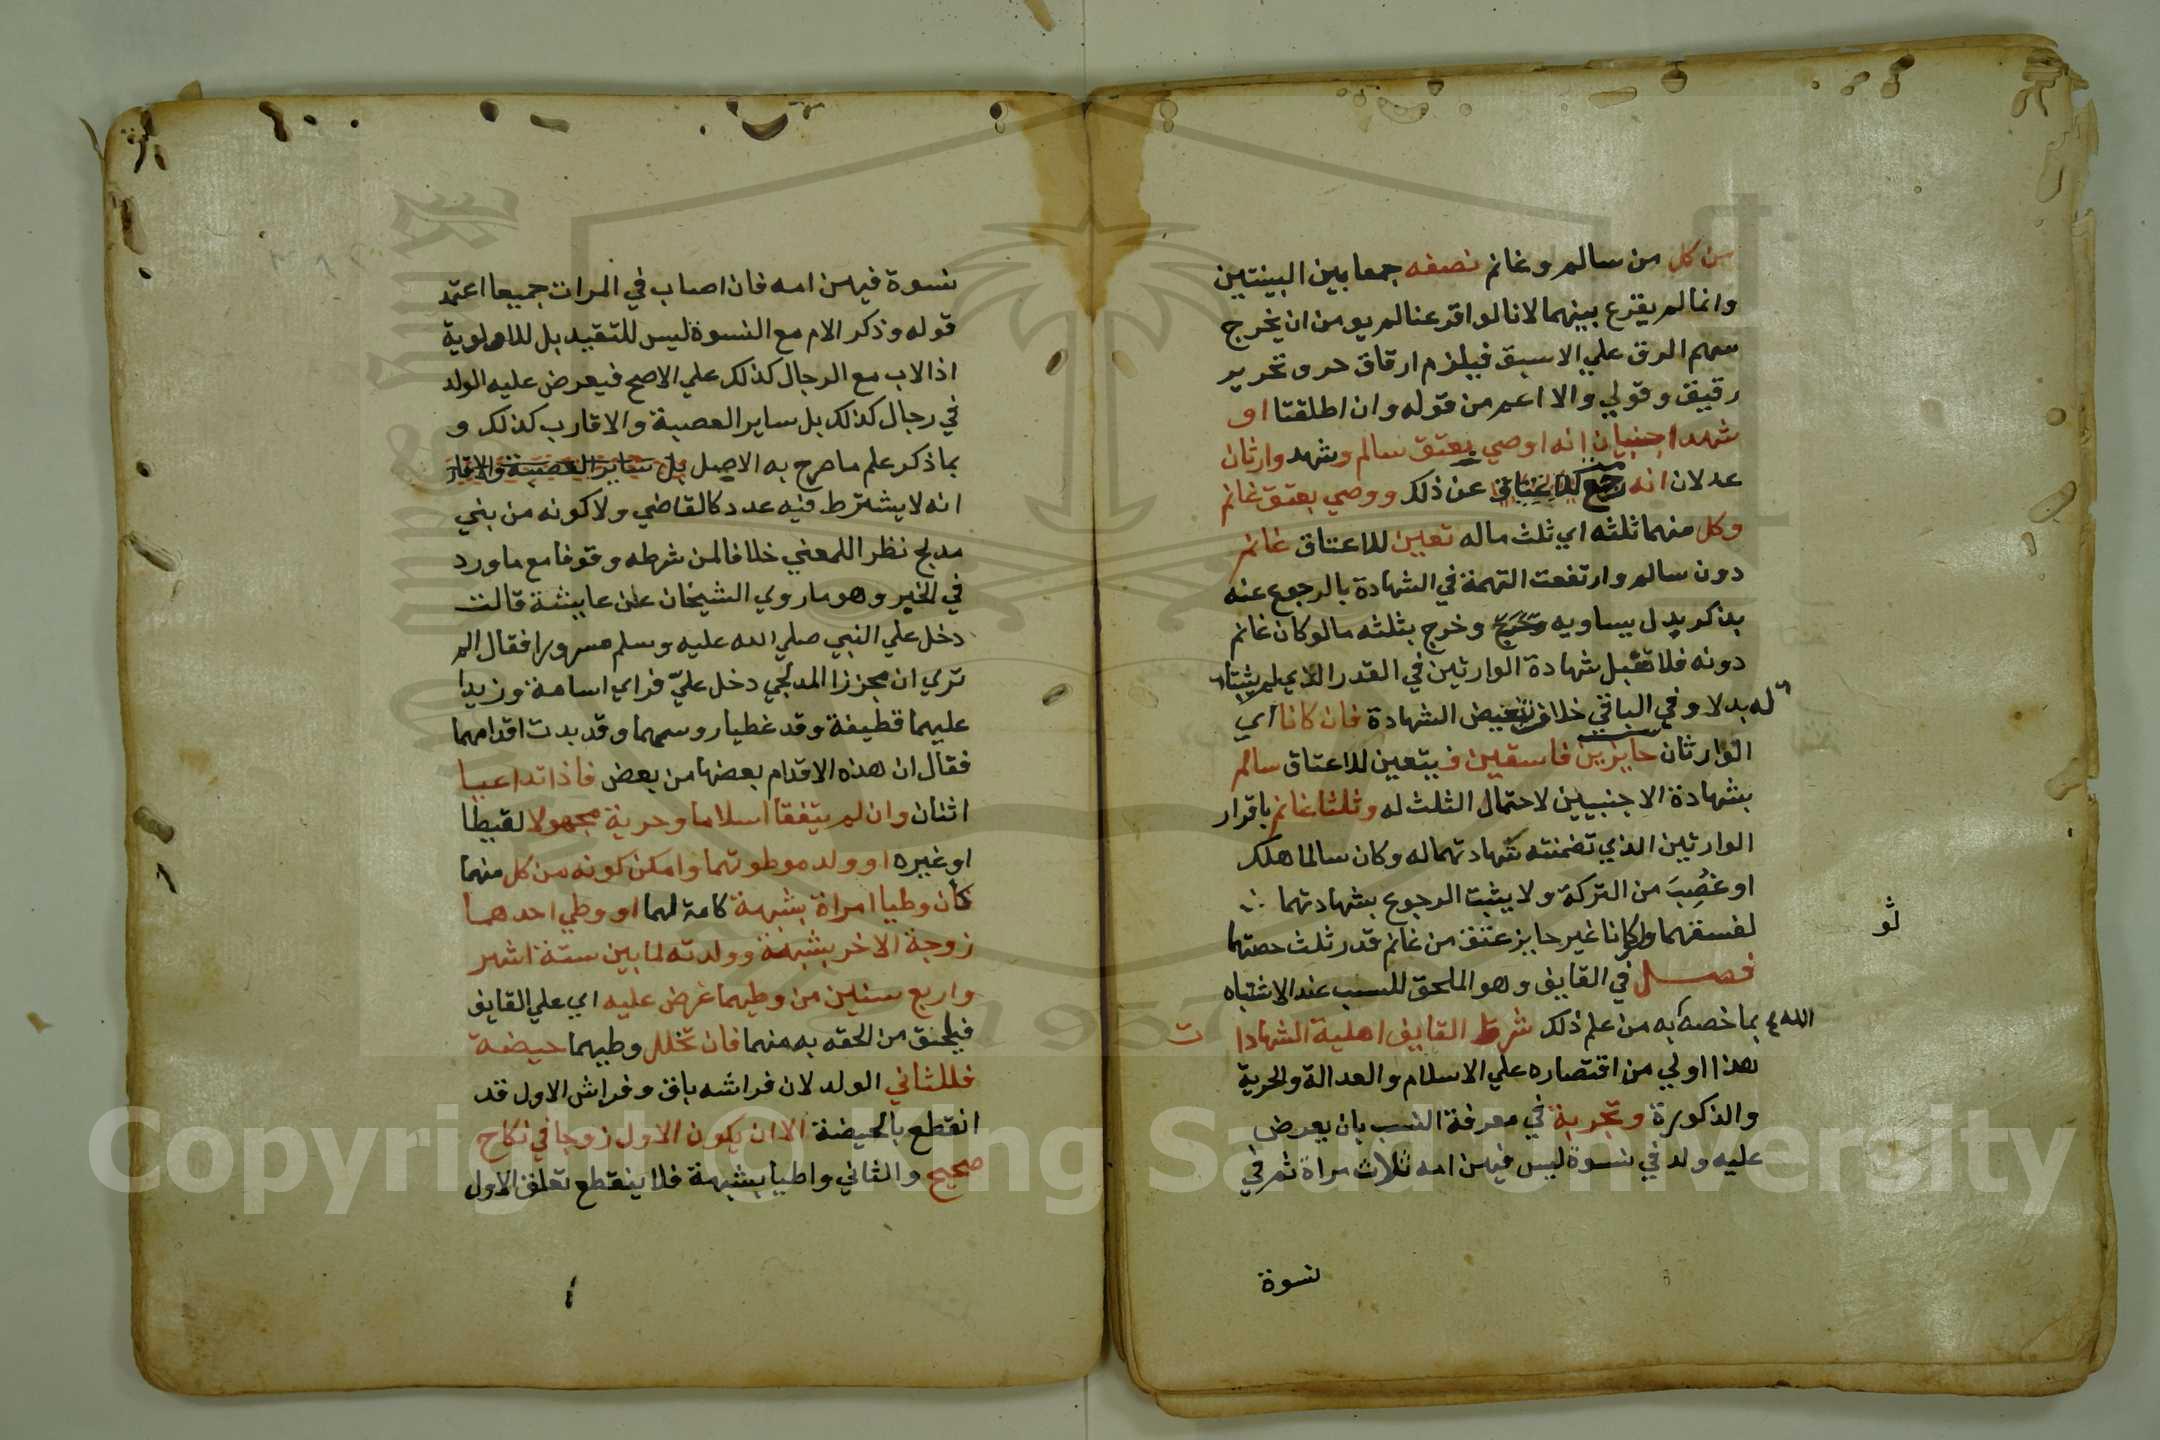 من كل من سالم وغانم نصفه جمعا بين البينتين
وانما لم يقرع بينهما لانا لو اقرعنا لم يومن ان يخرج
سهم الرق علي الاسبق فيلزم ارقاق حر وتحرير
رقيق وقولي والا اعم من قوله وان اطلقتا او
شهد اجنبيان انه اوصي بعتق سالم وشهد وارثان
عدلان انه رجع عن ذلك ووصي بعتق غانم
وكل منهما ثلثه اي ثلث ماله تعين للاعتاق غانم
دون سالم وارتفعت التهمة في الشهادة بالرجوع عنه
بذكر بدل يساويه وخرج بثلثه ما لو كان غانم
دونه فلا تقبل شهادة الوارثين في القدر الذي لم يثبتا
له بدلا وفي الباقي خلاف تبعيض الشهادة فان كانا اي
الوارثان حايزين فاسقين فيتعين للاعتاق سالم
بشهادة الاجنبيين لاحتمال الثلث له وثلثا غانم باقرار
الوارثين الذي تضمنته شهادتهما له وكان سالما هلك
او غصب من التركة ولا يثبت الرجوع بشهادتهما
لفسقهما ولو كانا غير حايز عتق من غانم قدر ثلث حصتهما
فصل في القايف وهو الملحق للنسب عند الاشتباه
بما خصه الله به من علم ذلك شرط القايف اهلية الشهادات
هذا اولي من اقتصاره علي الاسلام والعدالة والحرية
والذكورة وتجربة في معرفة النسب بان يعرض
عليه ولد في نسوة ليس فيهن امه ثلاث مراة ثم في
نسوة
نسوة فيهن امه فان اصاب في المرات جميعا اعتمد
قوله وذكر الام مع النسوة ليس للتقييد بل للاولوية
اذ الاب مع الرجال كذلك علي الاصح فيعرض عليه الولد
في رجال كذلك بل ساير العصبة والاقارب كذلك و
بما ذكر علم ما صرح به الاصل بل ساير العصبة والاقار
انه لا يشترط فيه عدد كالقاضي ولا كونه من بني
مدلج نظرا للمعني خلافا لمن شرطه وقوفا مع ما ورد
في الخبر وهو ما روي الشيخان عن عايشة قالت
دخل علي النبي صلي الله عليه وسلم مسرورا فقال الم
تري ان مجززا المدلجي دخل عليّ فراي اسامة وزيدا
عليهما قطيفة وقد غطيا روسهما وقد بدت اقدامهما
فقال ان هذه الاقدام بعضها من بعض فاذا تداعيا
اثنان وان لم يتفقا اسلاما وحرية مجهولا لقيطا
او غيره او ولد موطوتهما وامكن كونه من كل منهما
كأن وطيا امراة بشبهة كامة لهما او وطي احدهما
زوجة الاخر بشبهة وولدته لما بين ستة اشهر
واربع سنين من وطيهما عرض عليه اي علي القايف
فيلحق من الحقه به منهما فان تخلل وطييهما حيضة
فللثاني الولد لان فراشه باق وفراش الاول قد
انقطع بالحيضة الا ان يكون الاول زوجا في نكاح
صحيح والثاني واطيا بشبهة فلا ينقطع تعلق الاول
Copyright © King Saud University
1957